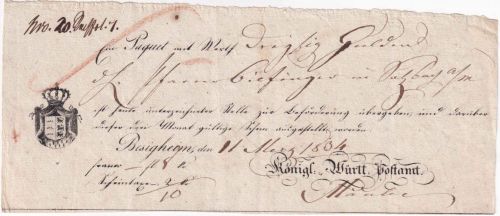 Nro. 20.
Ein Paquet mit Werth Dreißig Gulden
d. h. Pfarrer in Sulzbach a/m
ist heute unterzeichneter Stelle zur Beförderung übergeben, und darüber
dieser drei Monat gültige Schein ausgestellt worden.
Besigheim, den 11 März 1834
franco — fl 8 k
Königl. Württ. Postamt.
Scheintaxe 2 k
10